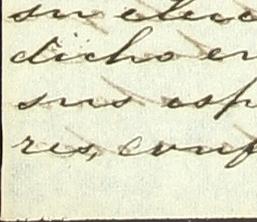 su elec
dicho en
sus asp
res, conf